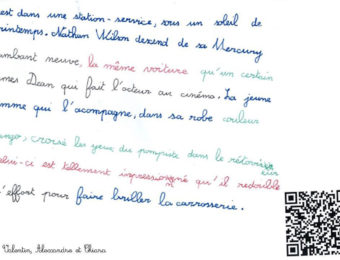 est dans une station-service, sous un soleil de
rintemps. Nathan Wilson descend de sa Mercury
ambant neuve, la même voiture qu'un certain
mes Dean qui fait l'acteur au cinéma. La jeune
mme qui l'accompagne, dans sa robe couleur
ango, croise les yeux du pompiste dans le rétoviseur
elui-ci est tellement impressionné qu'il redouble
'effort pour faire briller la carrosserie.
Valentin, Alessandro et Chiara